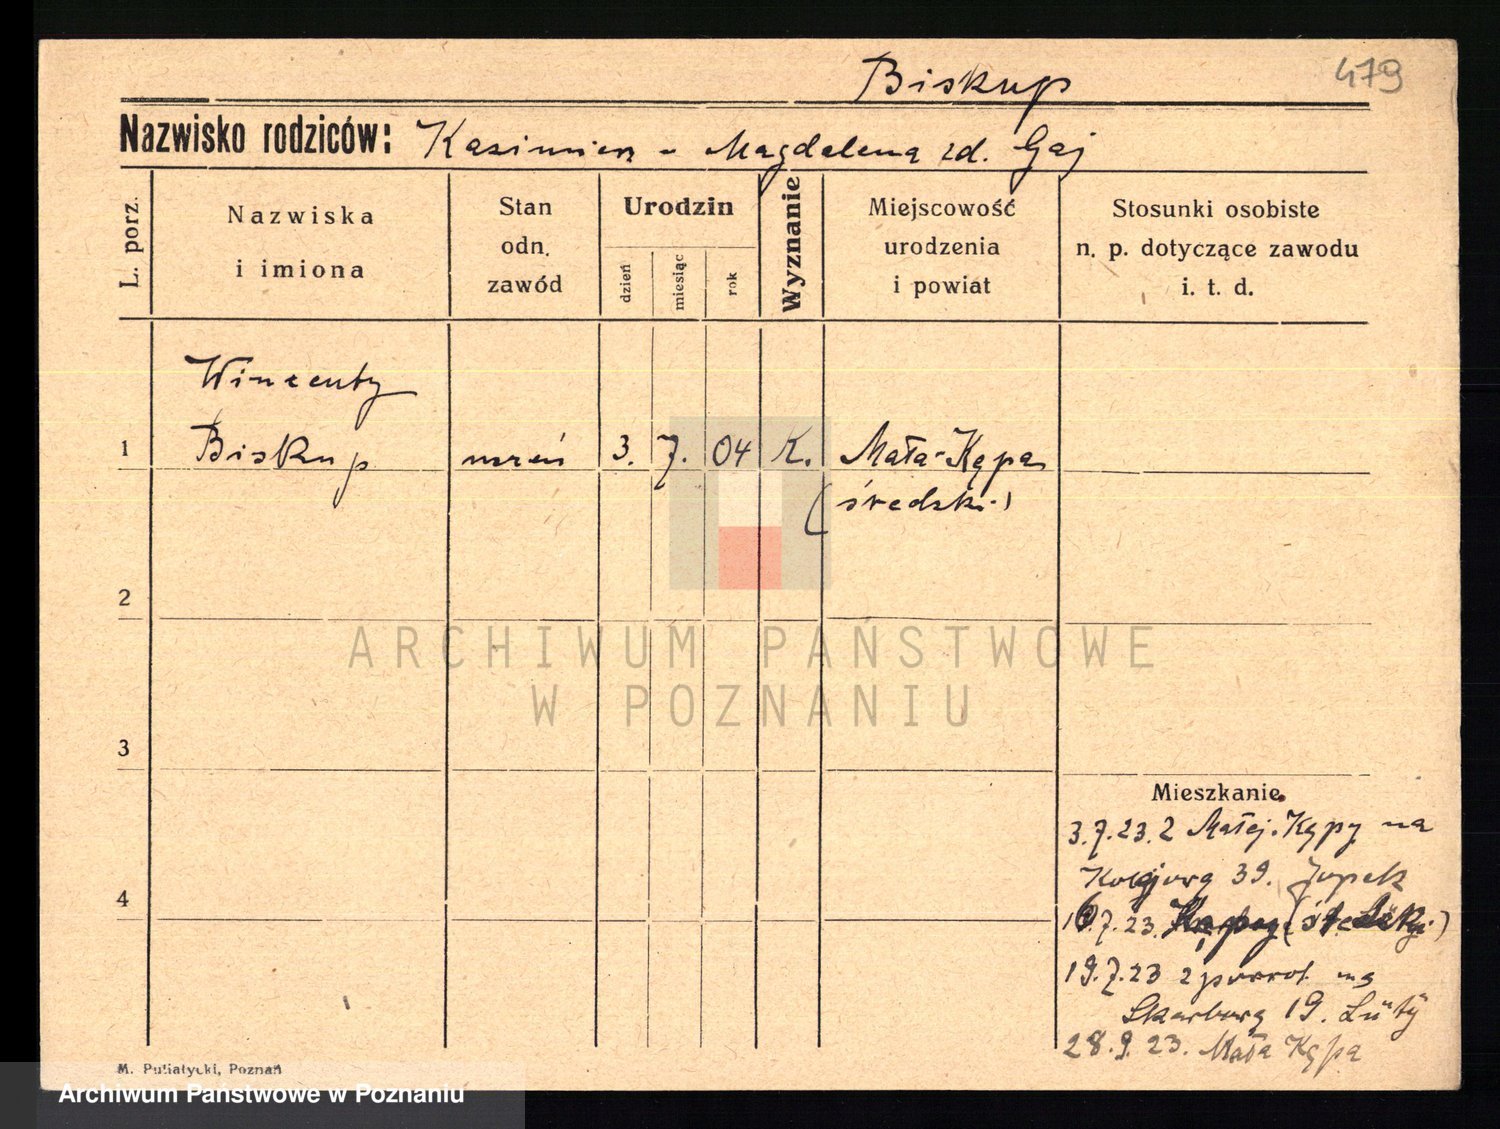 Biskup
479
Nazwisko rodziców: Kazimierz - Magdalena zd. Gaj
L. porz.
Nazwiska
i imiona
Stan
odn.
zawód
Urodzin
dzień
miesiąc
rok
Wyznanie
Miejscowość
urodzenia
i powiat
Stosunki osobiste
n. p. dotyczące zawodu
i. t. d.
Wincenty
1 Biskup uczeń 3. 7. 04 K. Mała-Kępa
(średzki)
2
3
4
Mieszkanie.
3.7.23. z Małej-Kępy na
39.
7.23. Kępa (średzki)
19.7.23 z powrot na
Skarbową 19. Lüty
28.9.23. Mała Kępa
ARCHIWUM PAŃSTWOWE
W POZNANIU
M. Puliatycki, Poznań
Archiwum Państwowe w Poznaniu